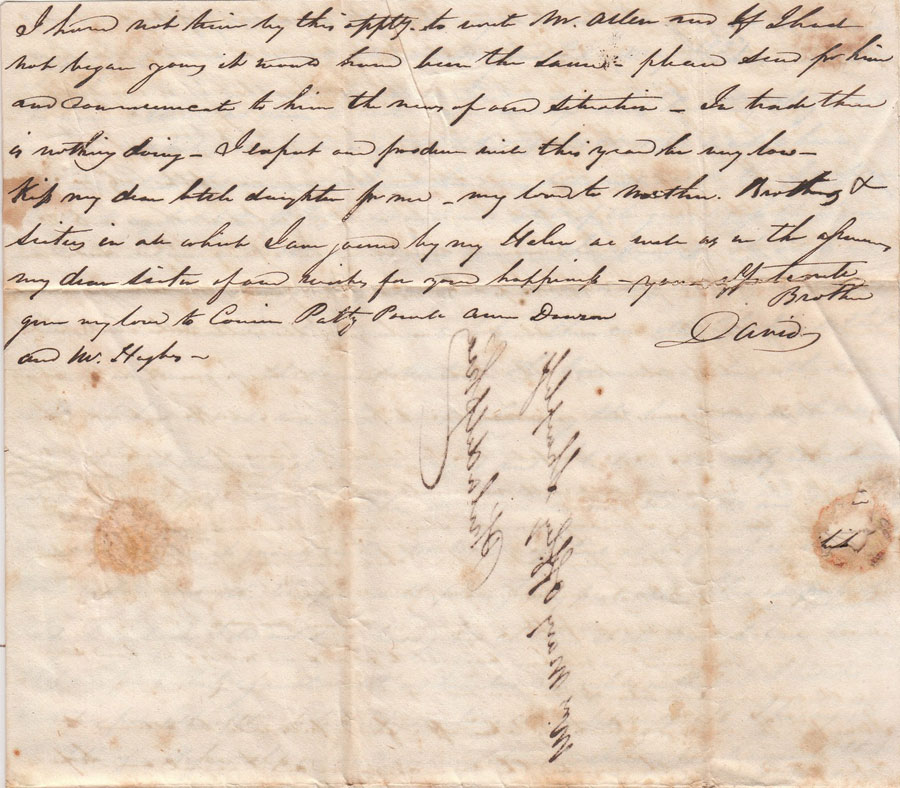 I have not time by this oppty. to write Mr. Allen and if I had
not began yours it would have been the same - please send for him
and communicate to him the news of our situation - In trade there
is nothing doing - I expect our produce will this year be very low -
Kiss my dear little daughter for me - my love to Mother. Brothers &
Sisters in all which I am joined by my Helen as well as in the
my dear Sister of our wishes for your happiness - your affectionate
Brother
give my love to Cousin Patty Ann Dawson
David
and Mr. Hughes -
Miss Mary
Philadelphia